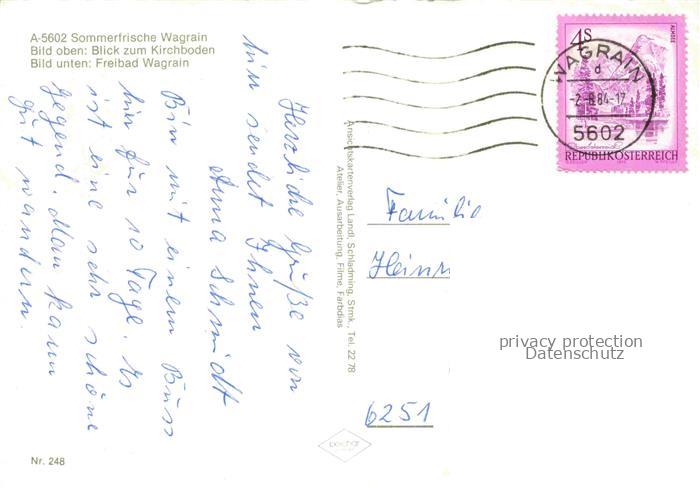 A-5602 Sommerfrische Wagrain
Bild oben: Blick zum Kirchboden
Bild unten: Freibad Wagrain
Herzliche Grüße von
hier sendet Ihnen
Anna Schmidt
Bin mit einem Buss
hier für 10 Tage. Es
ist eine sehr schöne
Gegend. Man kann
gut wandern.
Ansichtskartenverlag Landl, Schladming, Stmk., Tel. 22 78
Atelier, Ausarbeitung, Filme, Farbdias
4S
ALMSEE
WAGRAIN
d
-2.-8.84-17
5602
REPUBLIK ÖSTERREICH
Familie
Heinr
privacy protection
Datenschutz
6251
Nr. 248